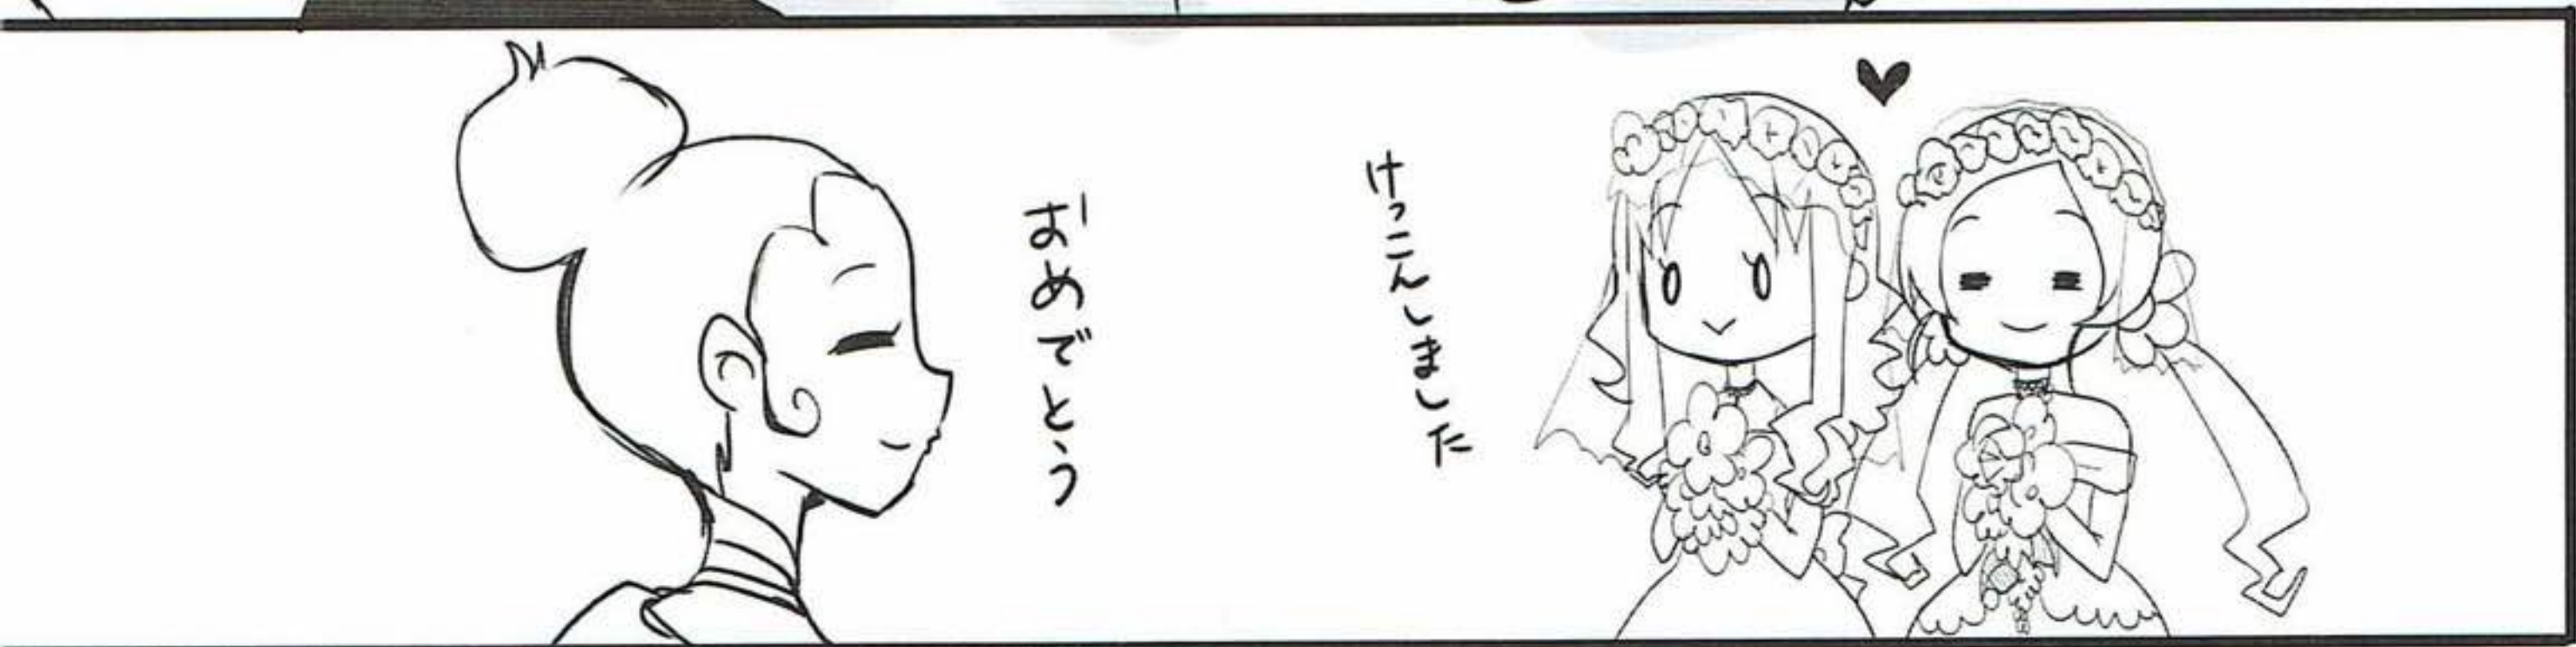 けっこんしました
おめでとう